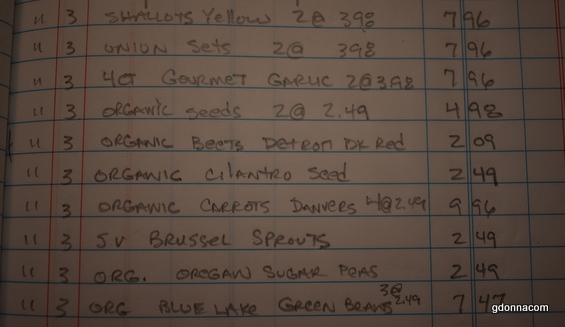 " 3 SHALLOTS Yellow 2@ 398 7 96
" 3 ONION Sets 2@ 398 7 96
" 3 4CT GOURMET GARLIC 2@398 7 96
" 3 ORGANIC Seeds 2@ 2.49 4 98
" 3 ORGANIC Beets Detroit DK Red 2 09
" 3 ORGANIC CILANTRO Seed 2 49
" 3 ORGANIC CARROTS DANVERS 4@2.49 9 96
" 3 SV BRUSSEL SPROUTS 2 49
" 3 ORG. OREGAN SUGAR PEAS 2 49
" 3 ORG BLUE LAKE GREEN BEANS 3@ 2.49 7 47
gdonnacom